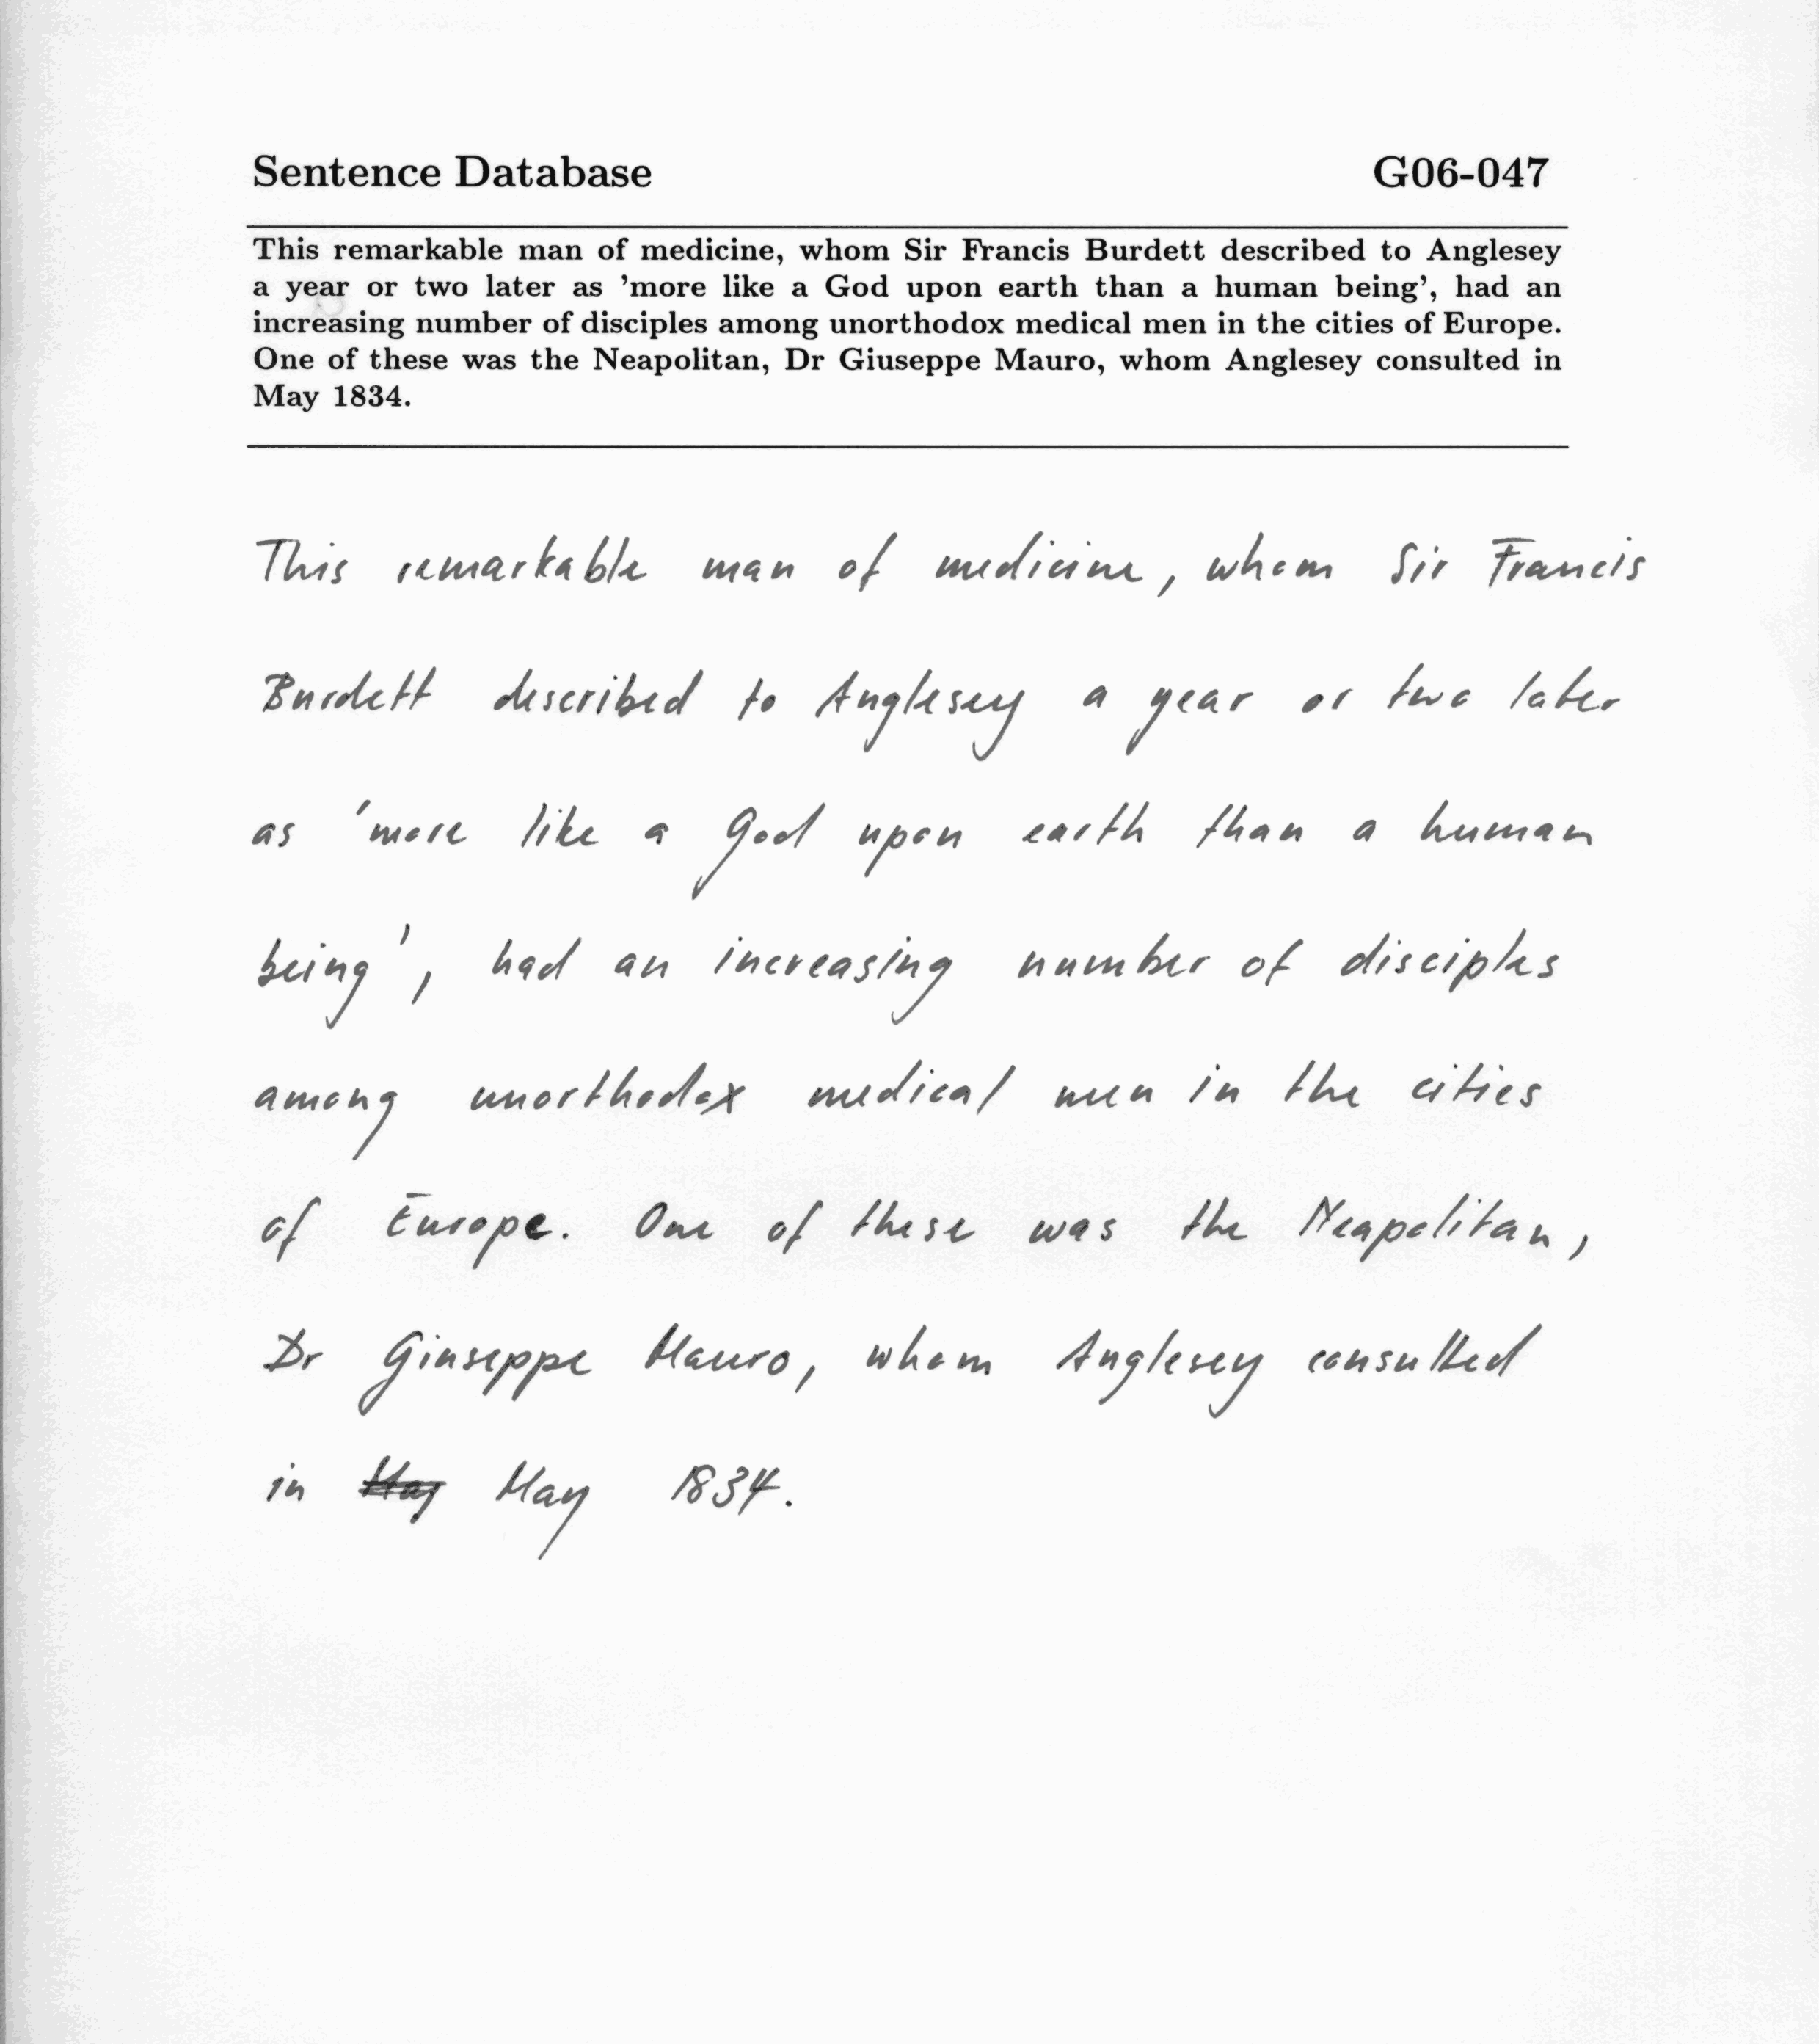 Sentence Database G06-047
This remarkable man of medicine, whom Sir Francis Burdett described to Anglesey
a year or two later as 'more like a God upon earth than a human being', had an
increasing number of disciples among unorthodox medical men in the cities of Europe.
One of these was the Neapolitan, Dr Giuseppe Mauro, whom Anglesey consulted in
May 1834.
This remarkable man of medicine, whom Sir Francis
Burdett described to Anglesey a year or two later
as 'more like a God upon earth than a human
being', had an increasing number of disciples
among unorthodox medical men in the cities
of Europe. One of these was the Neapolitan,
Dr Giuseppe Mauro, whom Anglesey consulted
in May May 1834.